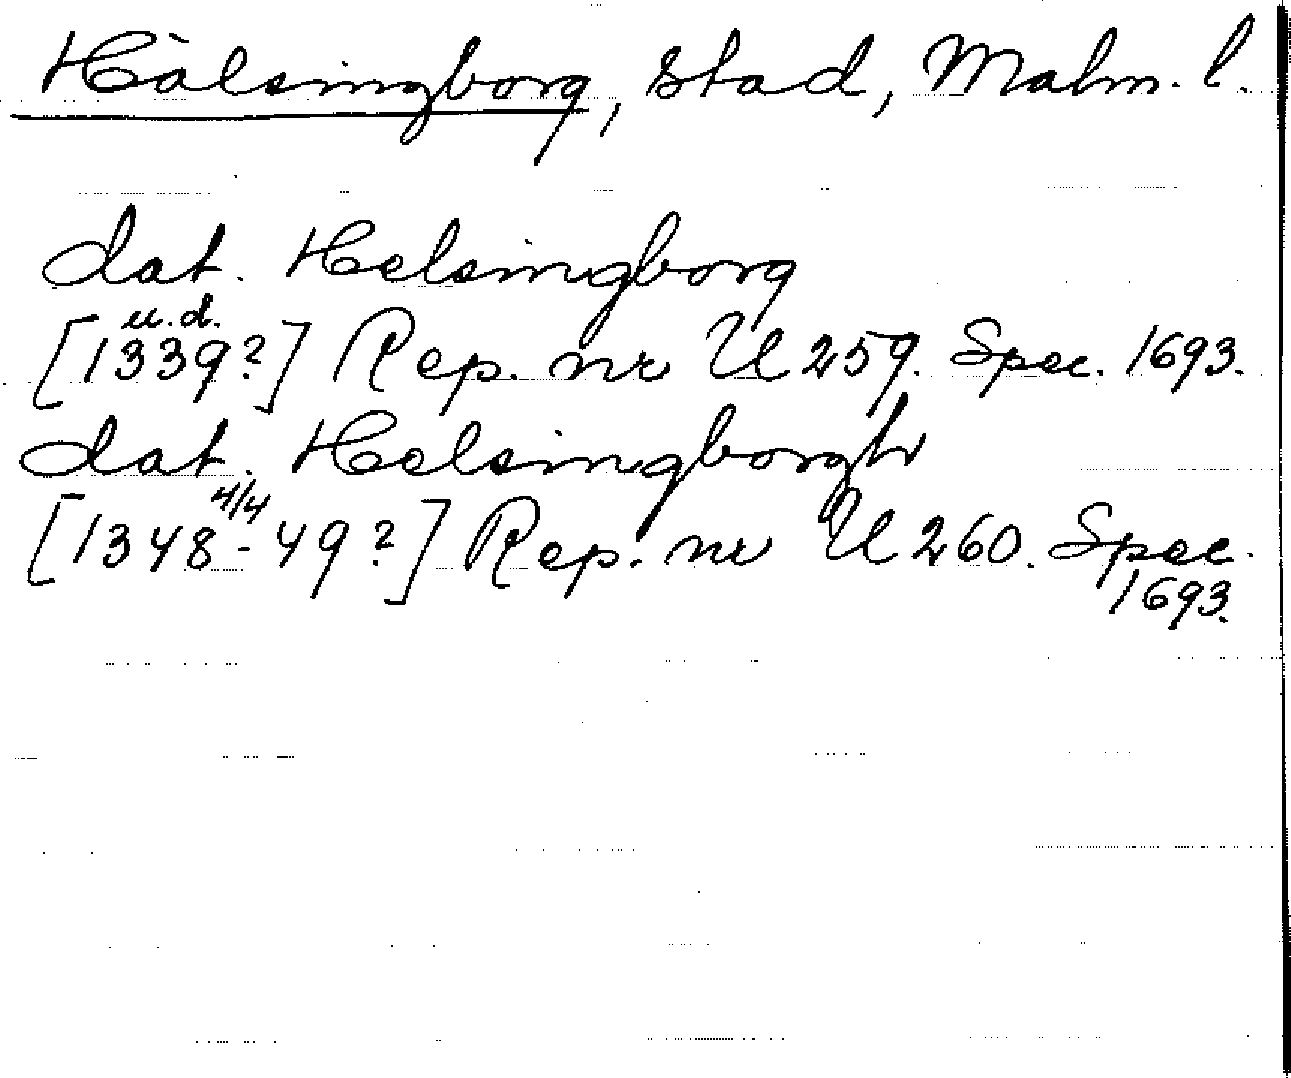 Hälsingborg, stad, Malm. l.
dat. Helsingborg
u.d.
[1339?] Rep. nr U 259. Spec. 1693.
dat. Helsingborgh
4/4
[1348-49?] Rep. nr U 260. Spec.
1693.